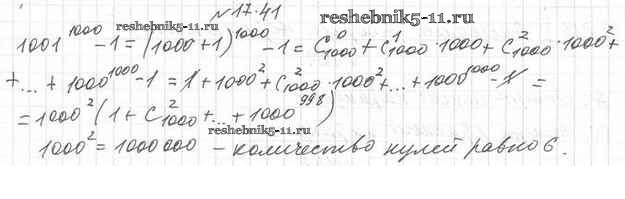 №17.41
reshebnik5-11.ru reshebnik5-11.ru
1001^1000 - 1 = (1000+1)^1000 - 1 = C^0_1000 + C^1_1000 · 1000 + C^2_1000 · 1000^2 +
+ ... + 1000^1000 - 1 = 1 + 1000^2 + C^2_1000 · 1000^2 + ... + 1000^1000 - 1 =
= 1000^2 (1 + C^2_1000 + ... + 1000^998)
reshebnik5-11.ru
1000^2 = 1000 000 - количество нулей равно 6.